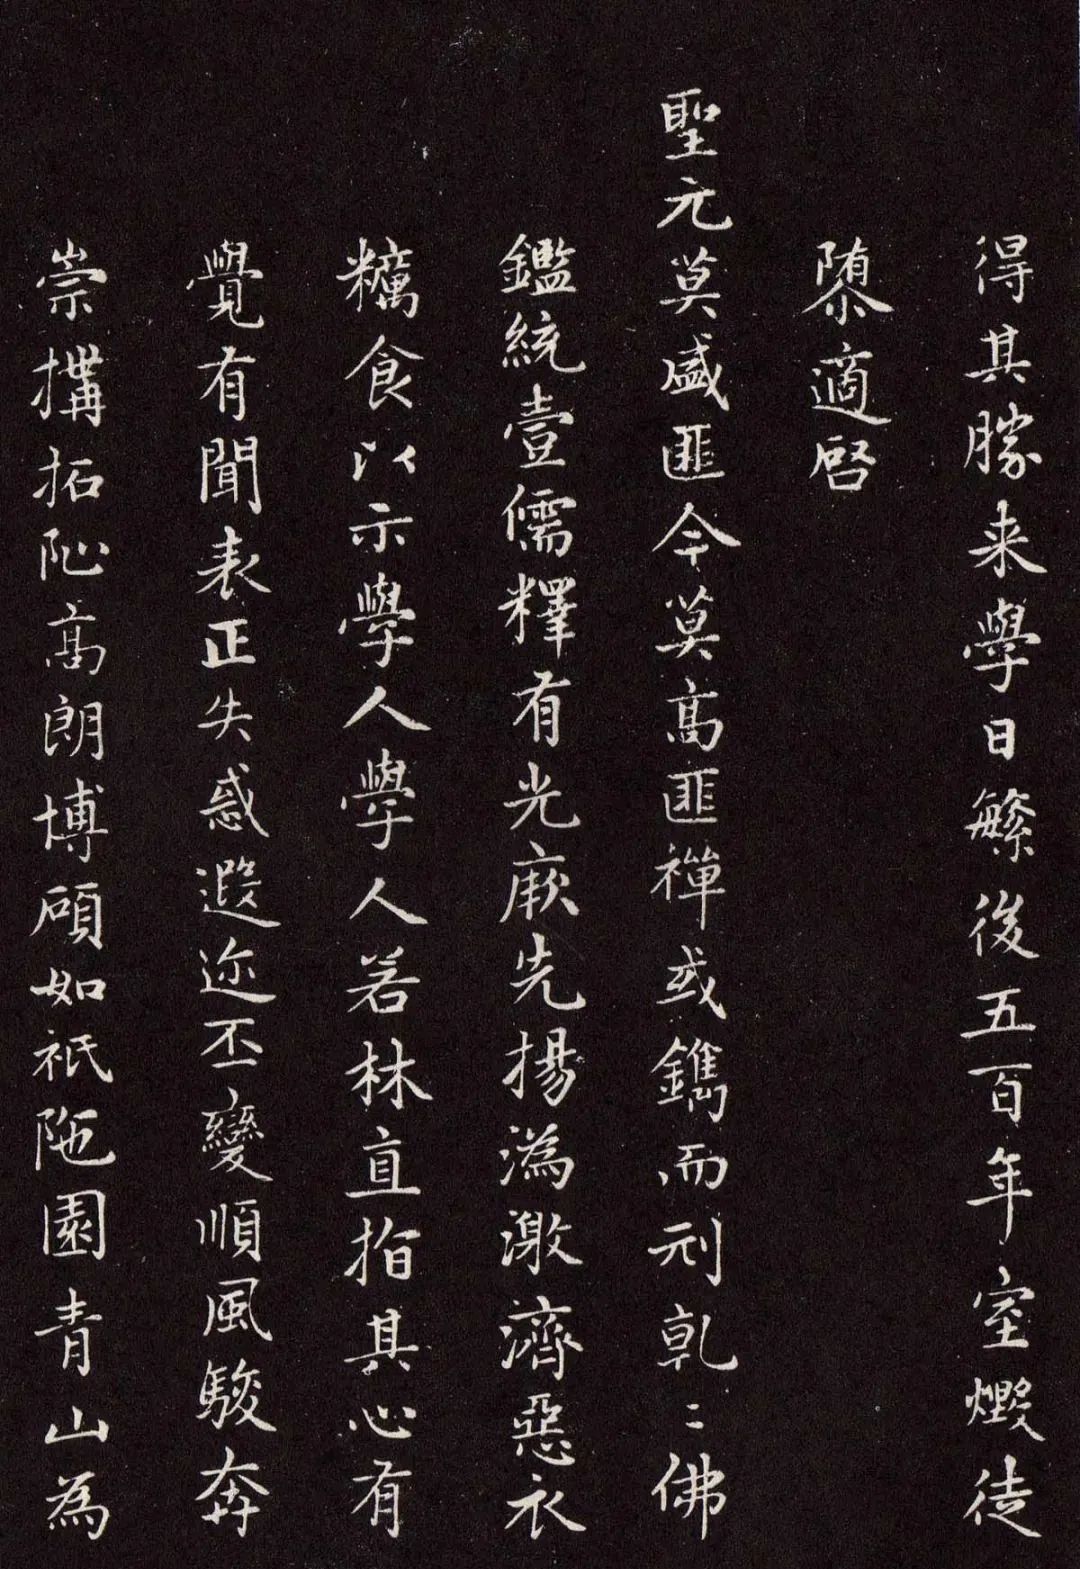 得其勝来學日繁後五百年室燬徒
隊適啓
聖元莫盛匪今莫高匪禪或鐫而刓乾〻佛
鑑統壹儒釋有光厥先揚溈激濟惡衣
糲食以示學人學人若林直指其心有
覺有聞表正失惑遐迩丕變順風駿奔
崇搆拓阯高朗博碩如祇陁園青山為